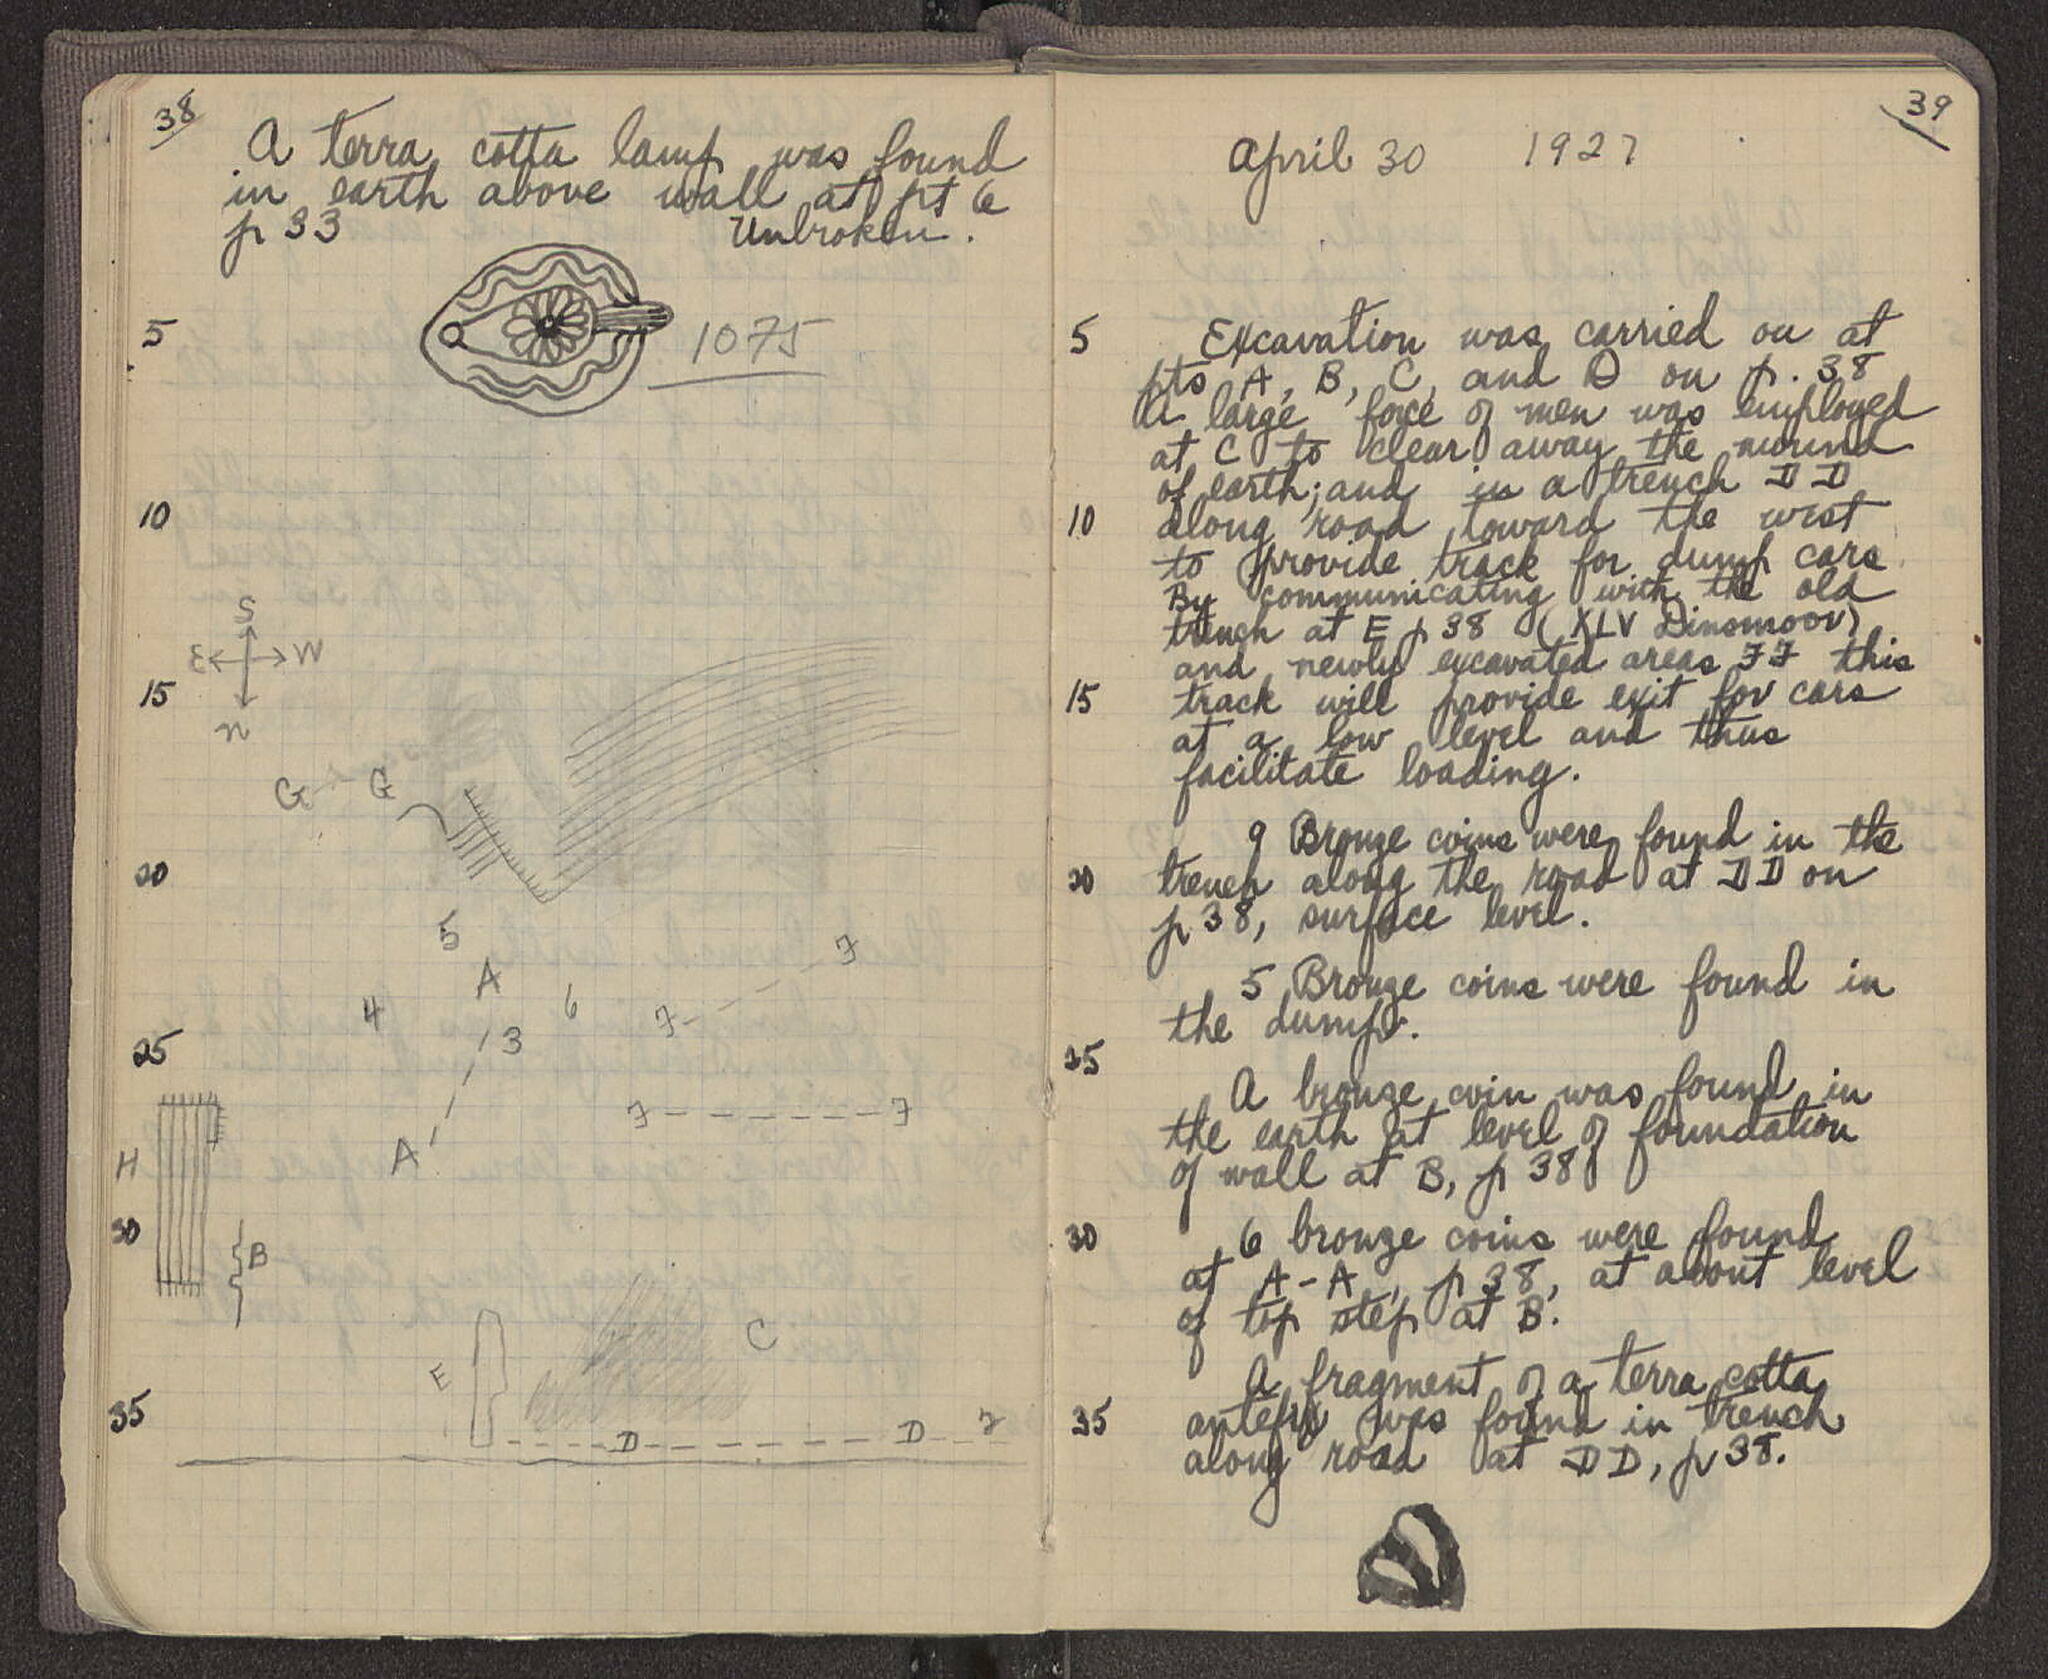 38
A terra cotta lamp was found
in earth above wall at pt 6
p 33 Unbroken.
5
1075
10
S
E W
15
n
G - G
20
5
A
F
4
6
F
3
25
F F
A
H
30
B
C
E
35
D D F
39
April 30 1927
5 Excavation was carried on at
pts A, B, C, and D on p. 38
A large force of men was employed
at C to clear away the mound
of earth; and in a trench DD
10 along road toward the west
to provide track for dump cars
By communicating with the old
trench at E p 38 (XLV Dinsmoor)
and newly excavated areas FF this
15 track will provide exit for cars
at a low level and thus
facilitate loading.
9 Bronze coins were found in the
20 trench along the road at DD on
p 38, surface level.
5 Bronze coins were found in
the dump.
25
A bronze coin was found in
the earth at level of foundation
of wall at B, p 38
30 6 bronze coins were found
at A-A, p 38, at about level
of top step at B.
A fragment of a terra cotta
35 antefix was found in trench
along road at DD, p 38.